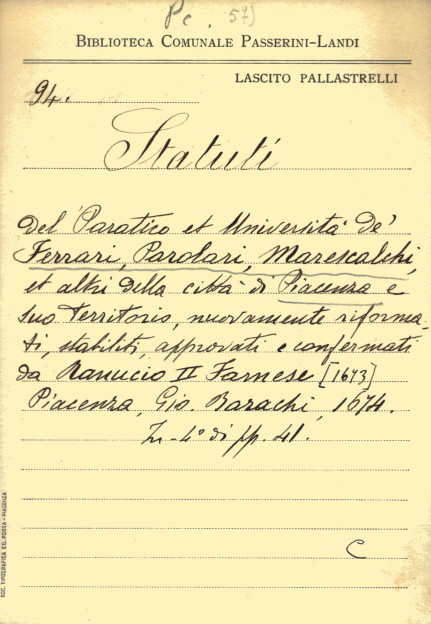 Pc. 57)
BIBLIOTECA COMUNALE PASSERINI-LANDI
LASCITO PALLASTRELLI
94.
Statuti
Del Paratico et Università de'
Ferrari, Parolari, Marescalchi,
et altri della città di Piacenza e
suo Territorio, nuovamente riforma-
ti, stabiliti, approvati e confermati
da Ranucio II Farnese [1673]
Piacenza, Gio. Bazachi, 1674.
In-4° di pp. 41.
C
SOC. TIPOGRAFICA ED. PORTA - PIACENZA